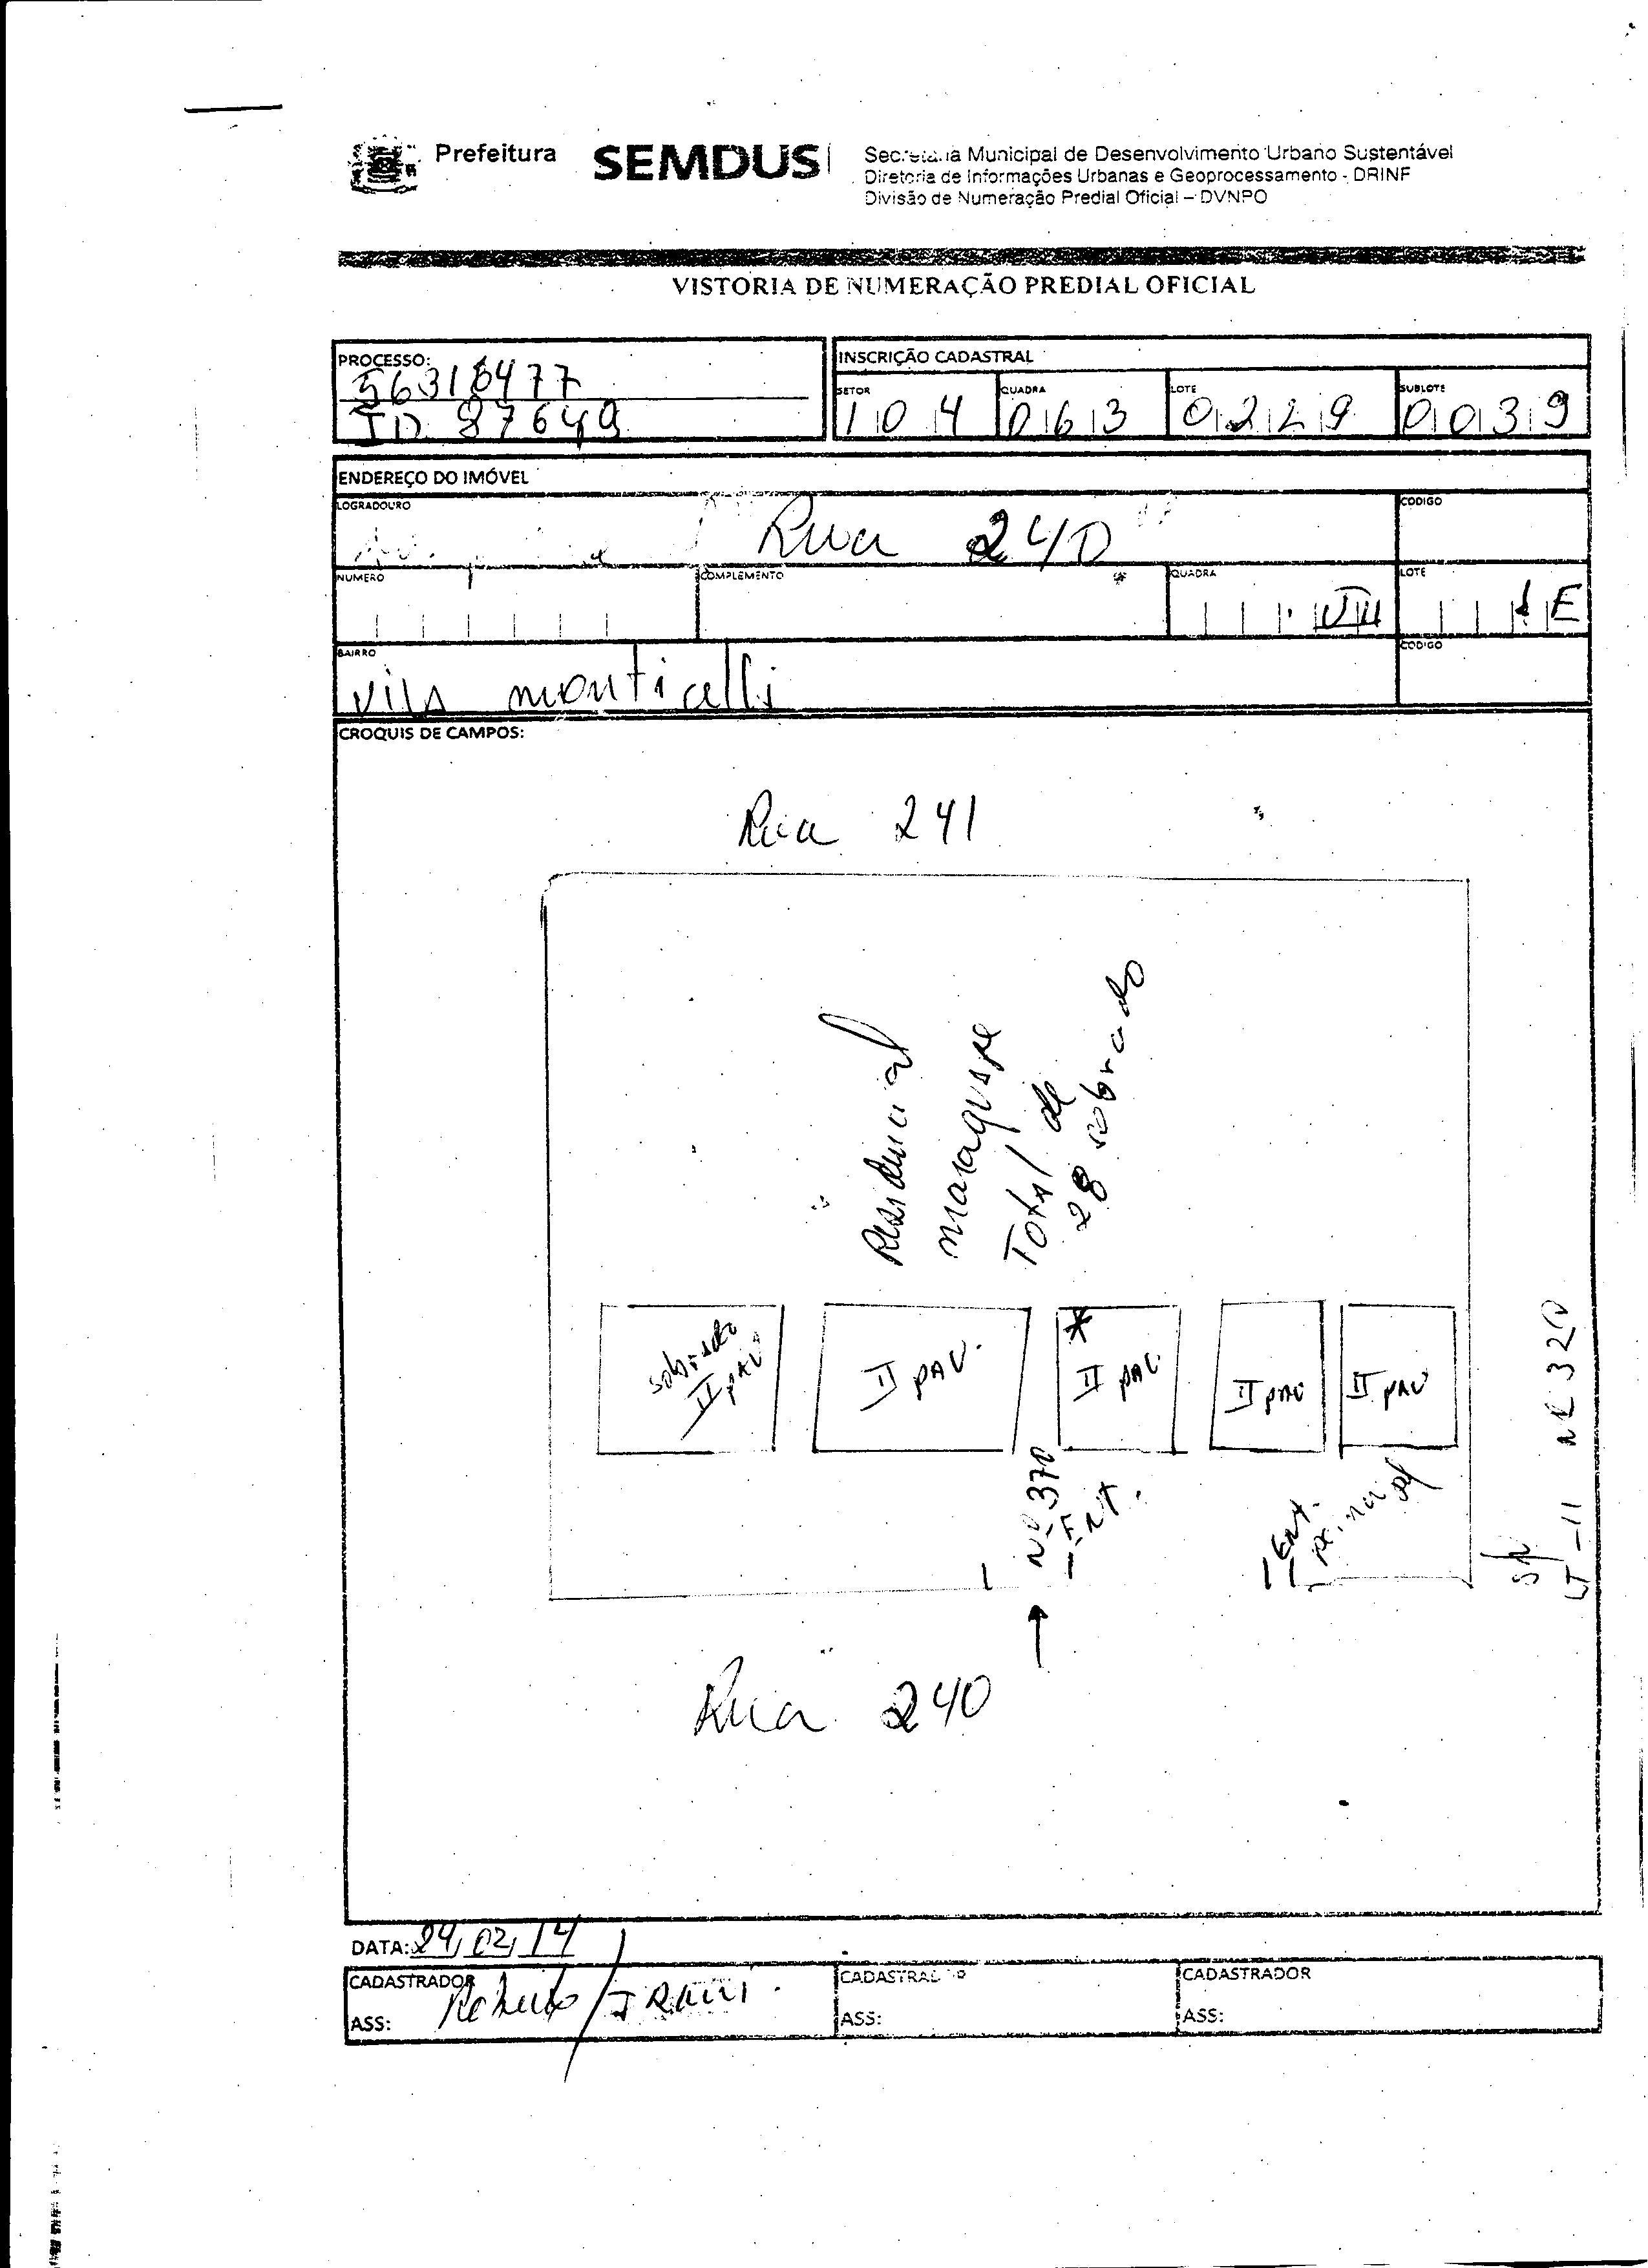 Prefeitura SEMDUS
Secretaria Municipal de Desenvolvimento Urbano Sustentável
Diretoria de Informações Urbanas e Geoprocessamento - DRINF
Divisão de Numeração Predial Oficial – DVNPO
VISTORIA DE NUMERAÇÃO PREDIAL OFICIAL
PROCESSO:
ID 87649
INSCRIÇÃO CADASTRAL
SETOR QUADRA LOTE SUBLOTE
104 063 0229 0039
ENDEREÇO DO IMÓVEL
LOGRADOURO CODIGO
Rua 240
NUMERO COMPLEMENTO QUADRA LOTE
BAIRRO CODIGO
Vila monticelli
CROQUIS DE CAMPOS:
Rua 241
Residencial
Total de
28 sobrado
sobrado
II PAV
II PAV.
*
II PAV.
II PAV
II PAV
Nº 370
ENT.
ENT.
principal
S/N
LT-11 NR 320
Rua 240
DATA: 24/02/14
CADASTRADOR CADASTRADOR CADASTRADOR
ASS: ASS: ASS: